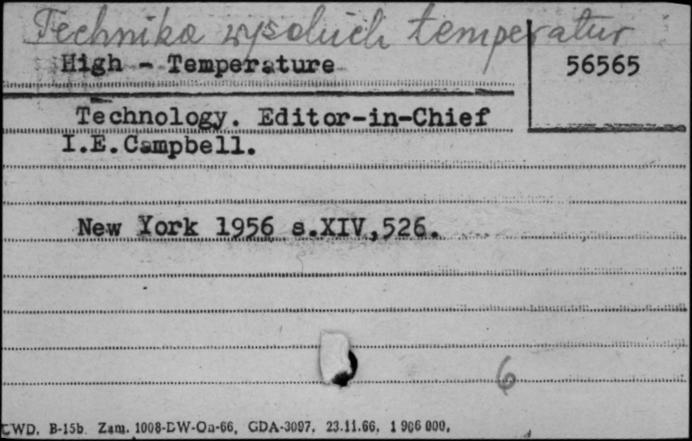 Technika wysokich temperatur
High - Temperature
56565
Technology. Editor-in-Chief
I.E.Campbell.
New York 1956 s.XIV,526.
6
CWD. B-15b. Zam. 1008-DW-Oa-66, GDA-3097, 23.11.66, 1 906 000,